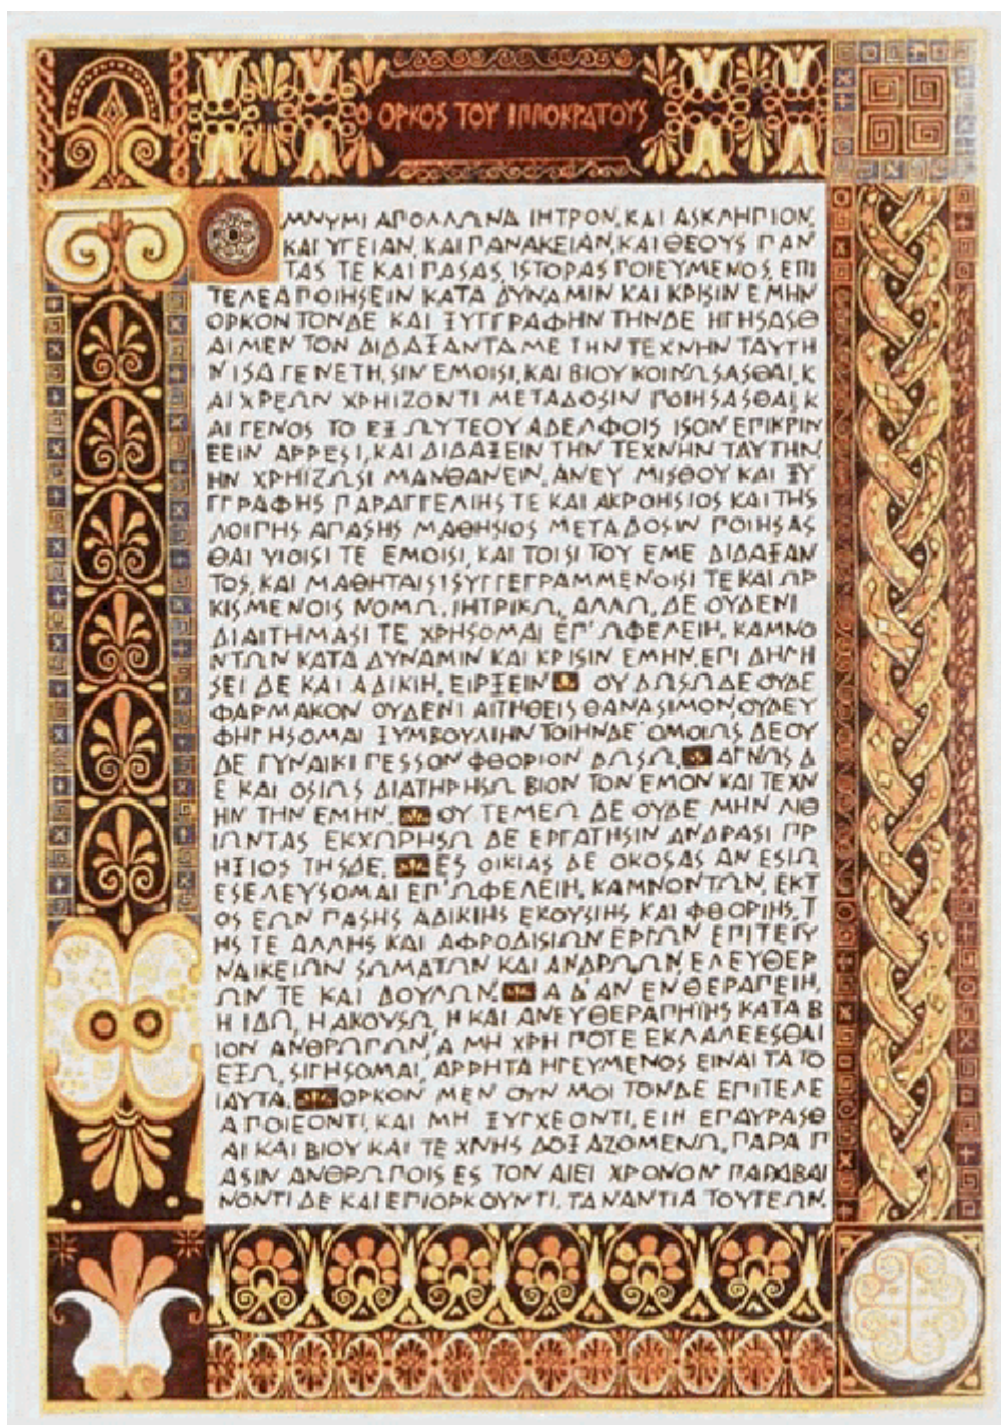 Ο ΟΡΚΟΣ ΤΟΥ ΙΠΠΟΚΡΑΤΟΥΣ
ΟΜΝΥΜΙ ΑΠΟΛΛΩΝΑ ΙΗΤΡΟΝ, ΚΑΙ ΑΣΚΛΗΠΙΟΝ,
ΚΑΙ ΥΓΕΙΑΝ, ΚΑΙ ΠΑΝΑΚΕΙΑΝ, ΚΑΙ ΘΕΟΥΣ ΠΑΝ
ΤΑΣ ΤΕ ΚΑΙ ΠΑΣΑΣ, ΙΣΤΟΡΑΣ ΠΟΙΕΥΜΕΝΟΣ, ΕΠΙ
ΤΕΛΕΑ ΠΟΙΗΣΕΙΝ ΚΑΤΑ ΔΥΝΑΜΙΝ ΚΑΙ ΚΡΙΣΙΝ ΕΜΗΝ
ΟΡΚΟΝ ΤΟΝΔΕ ΚΑΙ ΞΥΓΓΡΑΦΗΝ ΤΗΝΔΕ ΗΓΗΣΑΣΘ
ΑΙ ΜΕΝ ΤΟΝ ΔΙΔΑΞΑΝΤΑ ΜΕ ΤΗΝ ΤΕΧΝΗΝ ΤΑΥΤΗ
Ν ΙΣΑ ΓΕΝΕΤΗΣΙΝ ΕΜΟΙΣΙ, ΚΑΙ ΒΙΟΥ ΚΟΙΝΩΣΑΣΘΑΙ, Κ
ΑΙ ΧΡΕΩΝ ΧΡΗΙΖΟΝΤΙ ΜΕΤΑΔΟΣΙΝ ΠΟΙΗΣΑΣΘΑΙ, Κ
ΑΙ ΓΕΝΟΣ ΤΟ ΕΞ ΩΥΤΕΟΥ ΑΔΕΛΦΟΙΣ ΙΣΟΝ ΕΠΙΚΡΙΝ
ΕΕΙΝ ΑΡΡΕΣΙ, ΚΑΙ ΔΙΔΑΞΕΙΝ ΤΗΝ ΤΕΧΝΗΝ ΤΑΥΤΗΝ,
ΗΝ ΧΡΗΙΖΩΣΙ ΜΑΝΘΑΝΕΙΝ, ΑΝΕΥ ΜΙΣΘΟΥ ΚΑΙ ΞΥ
ΓΓΡΑΦΗΣ ΠΑΡΑΓΓΕΛΙΗΣ ΤΕ ΚΑΙ ΑΚΡΟΗΣΙΟΣ ΚΑΙ ΤΗΣ
ΛΟΙΠΗΣ ΑΠΑΣΗΣ ΜΑΘΗΣΙΟΣ ΜΕΤΑΔΟΣΙΝ ΠΟΙΗΣΑΣ
ΘΑΙ ΥΙΟΙΣΙ ΤΕ ΕΜΟΙΣΙ, ΚΑΙ ΤΟΙΣΙ ΤΟΥ ΕΜΕ ΔΙΔΑΞΑΝ
ΤΟΣ, ΚΑΙ ΜΑΘΗΤΑΙΣΙ ΣΥΓΓΕΓΡΑΜΜΕΝΟΙΣΙ ΤΕ ΚΑΙ ΩΡ
ΚΙΣΜΕΝΟΙΣ ΝΟΜΩ, ΙΗΤΡΙΚΩ, ΑΛΛΩ, ΔΕ ΟΥΔΕΝΙ
ΔΙΑΙΤΗΜΑΣΙ ΤΕ ΧΡΗΣΟΜΑΙ ΕΠ' ΩΦΕΛΕΙΗ, ΚΑΜΝΟ
ΝΤΩΝ ΚΑΤΑ ΔΥΝΑΜΙΝ ΚΑΙ ΚΡΙΣΙΝ ΕΜΗΝ, ΕΠΙ ΔΗΛΗ
ΣΕΙ ΔΕ ΚΑΙ ΑΔΙΚΙΗ, ΕΙΡΞΕΙΝ ΟΥ ΔΩΣΩ ΔΕ ΟΥΔΕ
ΦΑΡΜΑΚΟΝ ΟΥΔΕΝΙ ΑΙΤΗΘΕΙΣ ΘΑΝΑΣΙΜΟΝ, ΟΥΔΕ Υ
ΦΗΓΗΣΟΜΑΙ ΞΥΜΒΟΥΛΙΗΝ ΤΟΙΗΝΔΕ ΟΜΟΙΩΣ ΔΕ ΟΥ
ΔΕ ΓΥΝΑΙΚΙ ΠΕΣΣΟΝ ΦΘΟΡΙΟΝ ΔΩΣΩ, ΑΓΝΩΣ Δ
Ε ΚΑΙ ΟΣΙΩΣ ΔΙΑΤΗΡΗΣΩ ΒΙΟΝ ΤΟΝ ΕΜΟΝ ΚΑΙ ΤΕΧΝ
ΗΝ ΤΗΝ ΕΜΗΝ. ΟΥ ΤΕΜΕΩ ΔΕ ΟΥΔΕ ΜΗΝ ΛΙΘ
ΙΩΝΤΑΣ ΕΚΧΩΡΗΣΩ ΔΕ ΕΡΓΑΤΗΣΙΝ ΑΝΔΡΑΣΙ ΠΡ
ΗΞΙΟΣ ΤΗΣΔΕ. ΕΣ ΟΙΚΙΑΣ ΔΕ ΟΚΟΣΑΣ ΑΝ ΕΣΙΩ
ΕΣΕΛΕΥΣΟΜΑΙ ΕΠ' ΩΦΕΛΕΙΗ, ΚΑΜΝΟΝΤΩΝ, ΕΚΤ
ΟΣ ΕΩΝ ΠΑΣΗΣ ΑΔΙΚΙΗΣ ΕΚΟΥΣΙΗΣ ΚΑΙ ΦΘΟΡΙΗΣ, Τ
ΗΣ ΤΕ ΑΛΛΗΣ ΚΑΙ ΑΦΡΟΔΙΣΙΩΝ ΕΡΓΩΝ ΕΠΙ ΤΕ ΓΥ
ΝΑΙΚΕΙΩΝ ΣΩΜΑΤΩΝ ΚΑΙ ΑΝΔΡΩΩΝ, ΕΛΕΥΘΕΡ
ΩΝ ΤΕ ΚΑΙ ΔΟΥΛΩΝ. Α Δ' ΑΝ ΕΝ ΘΕΡΑΠΕΙΗ,
Η ΙΔΩ, Η ΑΚΟΥΣΩ, Η ΚΑΙ ΑΝΕΥ ΘΕΡΑΠΗΙΗΣ ΚΑΤΑ Β
ΙΟΝ ΑΝΘΡΩΠΩΝ, Α ΜΗ ΧΡΗ ΠΟΤΕ ΕΚΛΑΛΕΕΣΘΑΙ
ΕΞΩ, ΣΙΓΗΣΟΜΑΙ, ΑΡΡΗΤΑ ΗΓΕΥΜΕΝΟΣ ΕΙΝΑΙ ΤΑ ΤΟ
ΙΑΥΤΑ. ΟΡΚΟΝ ΜΕΝ ΟΥΝ ΜΟΙ ΤΟΝΔΕ ΕΠΙΤΕΛΕ
Α ΠΟΙΕΟΝΤΙ, ΚΑΙ ΜΗ ΞΥΓΧΕΟΝΤΙ, ΕΙΗ ΕΠΑΥΡΑΣΘ
ΑΙ ΚΑΙ ΒΙΟΥ ΚΑΙ ΤΕΧΝΗΣ ΔΟΞΑΖΟΜΕΝΩ, ΠΑΡΑ Π
ΑΣΙΝ ΑΝΘΡΩΠΟΙΣ ΕΣ ΤΟΝ ΑΙΕΙ ΧΡΟΝΟΝ ΠΑΡΑΒΑΙ
ΝΟΝΤΙ ΔΕ ΚΑΙ ΕΠΙΟΡΚΟΥΝΤΙ, ΤΑΝΑΝΤΙΑ ΤΟΥΤΕΩΝ.